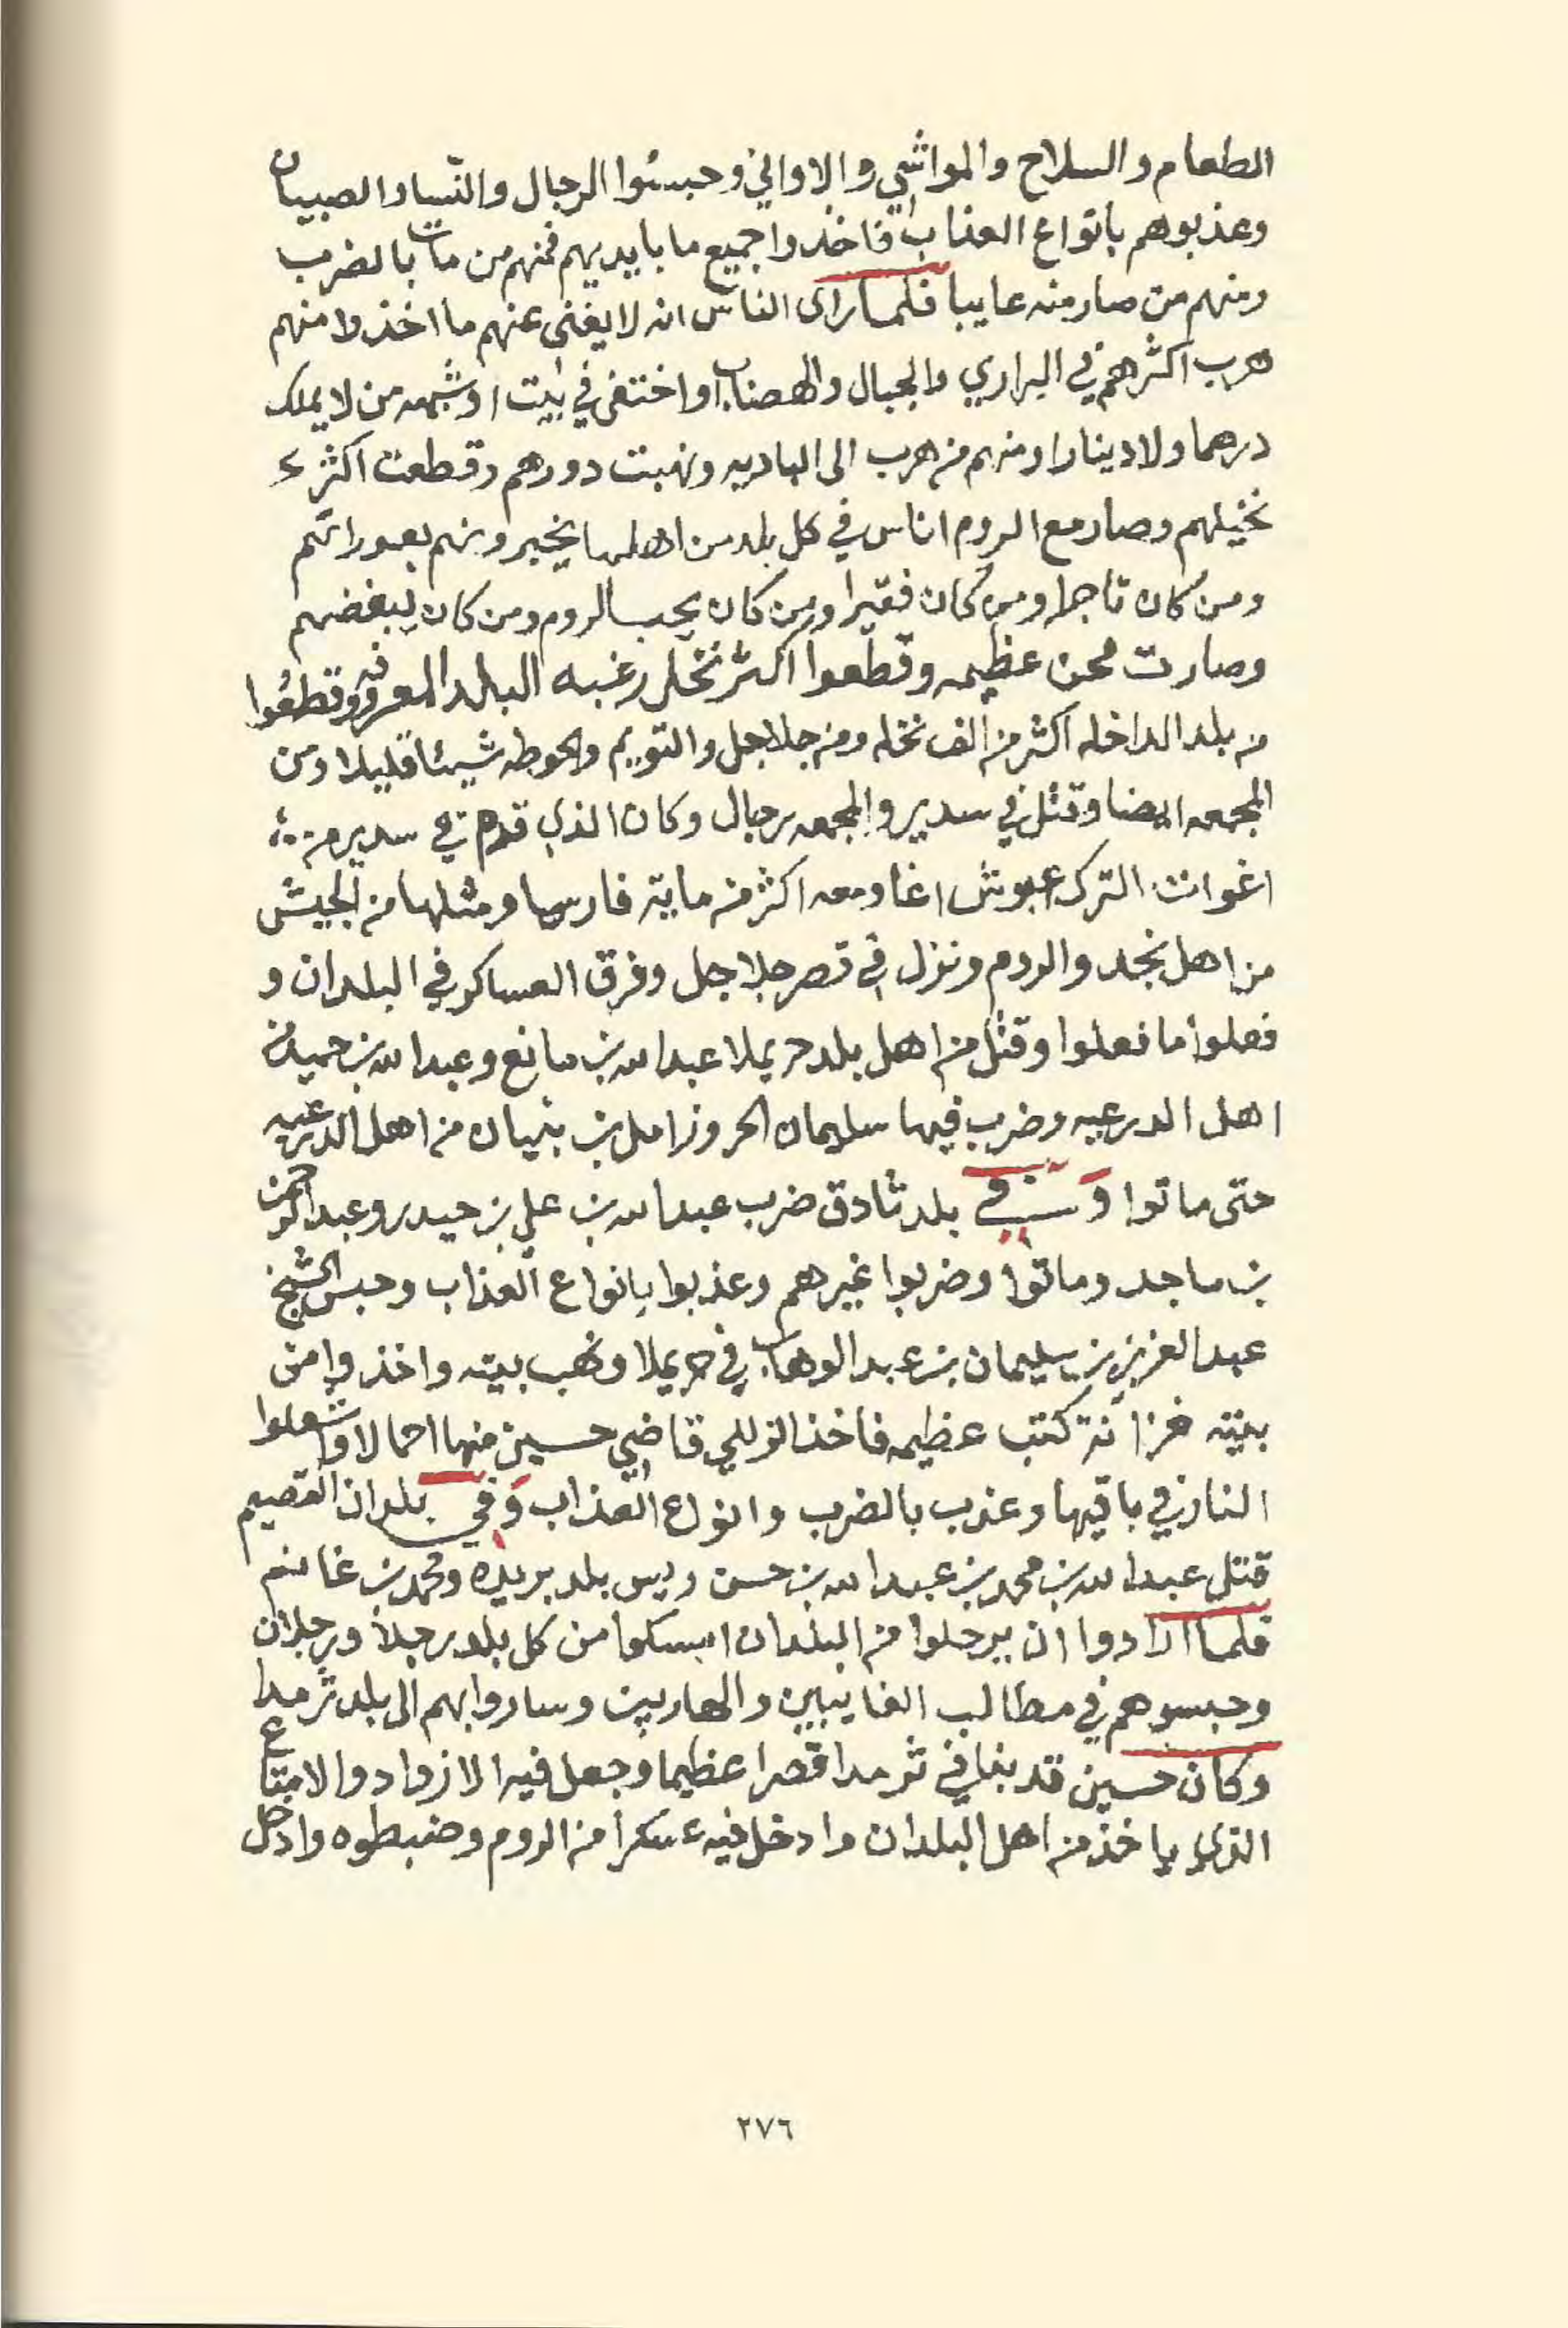 الطعام والسلاح والمواشي والاواني وحبسوا الرجال والنسا والصبيان
وعذبوهم بانواع العذاب فاخذوا جميع ما بايديهم فمنهم من مات بالضرب
ومنهم من صار منه عايبا فلما راى الناس انه لا يغنى عنهم ما اخذوا منهم
هرب اكثرهم في البراري والجبال والهضاب او اختفى في بيت او شبهه من لا يملك
درهما ولا دينارا ومنهم من هرب الى الباديه ونهبت دورهم وقطعت اكثر
نخيلهم وصار مع الروم اناس في كل بلد من اهلها يخبرونهم بعوراتهم
ومن كان تاجرا ومن كان فقيرا ومن كان يحب الروم ومن كان يبغضهم
وصارت محن عظيمه وقطعوا اكثر نخل رغبه البلد المعروفه وقطعوا
من بلد الداخله اكثر من الف نخله ومن جلاجل والتويم والحوطه شيئا قليلا ومن
المجمعه ايضا وقتل في سدير والمجمعه رجال وكان الذي قدم في سدير من
اغوات الترك عبوش اغا ومعه اكثر من مايته فارسا ومثلها من الجيش
من اهل نجد والروم ونزل في قصر جلاجل وفرق العساكر في البلدان و
فعلوا ما فعلوا وقتل من اهل بلد حريملا عبدالله بن مانع وعبدالله بن حميدن
اهل الدرعيه وضرب فيها سليمان الحر وزامل بن بنيان من اهل الدرعيه
حتى ماتوا وفي بلد ثادق ضرب عبدالله بن علي بن حيدر وعبدالرحمن
بن ماجد وماتوا وضربوا غيرهم وعذبوا بانواع العذاب وحبس الشيخ
عبدالعزيز بن سليمان بن عبدالوهاب في حريملا ونهب بيته واخذوا من
بيته خزانة كتب عظيمه فاخذ الزللي قاضي حسين منها احمالا واشعلوا
النار في باقيها وعذب بالضرب وانواع العذاب وفي بلدان القصيم
قتل عبدالله بن محمد بن عبدالله بن حسن رييس بلد بريده ومحمد بن غانم
فلما ارادوا ان يرحلوا من البلدان امسكوا من كل بلد رجلا ورجلان
وحبسوهم في مطالب الغايبين والهاربين وساروا بهم الى بلد ثرمدا
وكان حسين قد بنا في ثرمدا قصرا عظيما وجعل فيه الازواد والامتاع
الذي ياخذ من اهل البلدان وادخل فيه عسكرا من الروم وضبطوه وادخل
٢٧٦